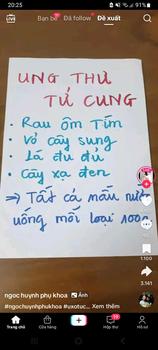 20:25
LIVE
Bạn bè
Đã follow
Đề xuất
UNG THƯ
TỬ CUNG
• Rau ôm Tím
• Vỏ cây sung
• Lá đu đủ
• Cây xạ đen
⇒ Tất cả mẫu nước
uống mỗi loại 100g
1.100
3.141
ngọc huỳnh phụ khoa Ảnh
#ngochuynhphukhoa #uxotuc... Xem thêm
Trang chủ
Cửa hàng
Hộp thư
Hồ sơ